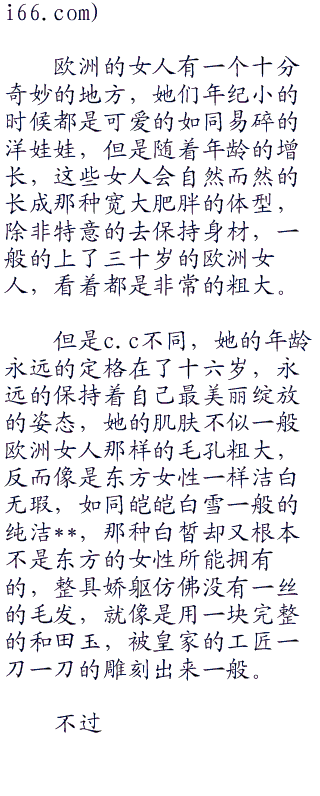 i66.com)
欧洲的女人有一个十分
奇妙的地方，她们年纪小的
时候都是可爱的如同易碎的
洋娃娃，但是随着年龄的增
长，这些女人会自然而然的
长成那种宽大肥胖的体型，
除非特意的去保持身材，一
般的上了三十岁的欧洲女
人，看着都是非常的粗大。
但是c.c不同，她的年龄
永远的定格在了十六岁，永
远的保持着自己最美丽绽放
的姿态，她的肌肤不似一般
欧洲女人那样的毛孔粗大，
反而像是东方女性一样洁白
无瑕，如同皑皑白雪一般的
纯洁**，那种白皙却又根本
不是东方的女性所能拥有
的，整具娇躯仿佛没有一丝
的毛发，就像是用一块完整
的和田玉，被皇家的工匠一
刀一刀的雕刻出来一般。
不过